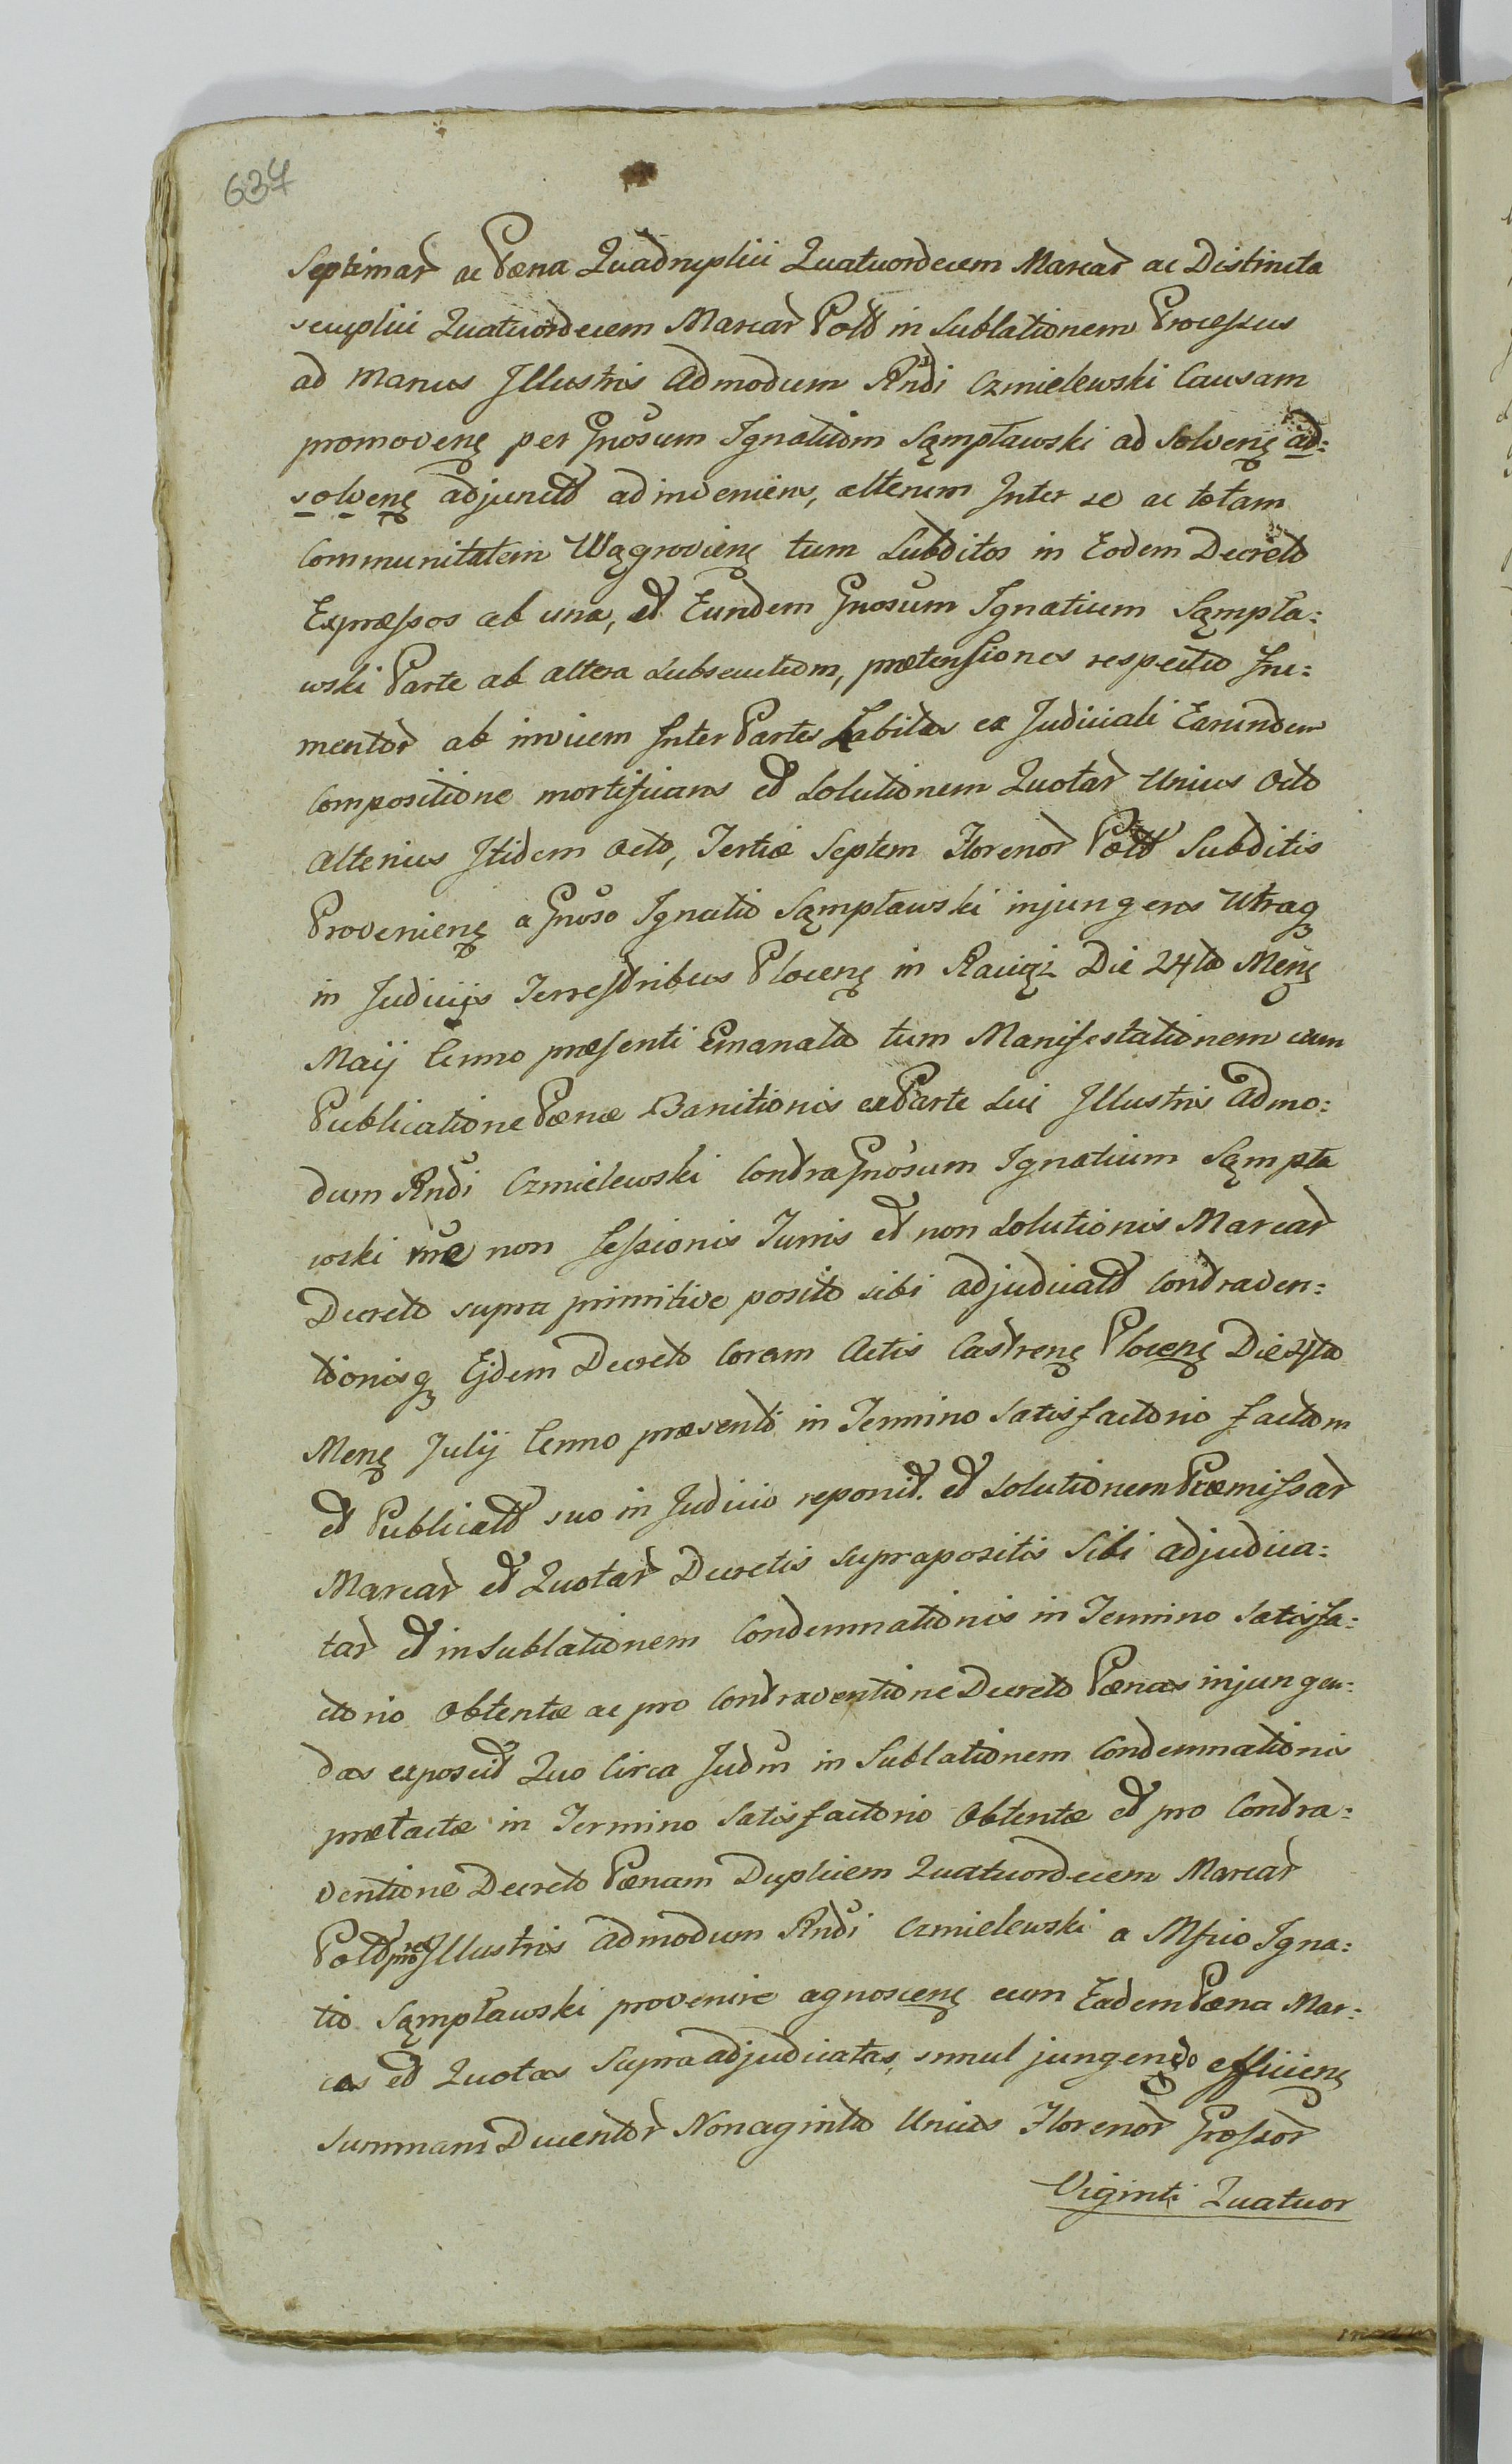 637
Septimar ac Pæna Quadruplici Quatuordecem Marcar ac Distincta
scuplici Quatuordecem Marcar Pold in Sublationem Processus
ad Manus Illustris Admodum Rndi Czmielewski Causam
promovenς per Gnosum Ignatium Sąmpławski ad Solvenς ad:
solvenς adjunctd adinveniens, alterum Inter se ac totam
Communitatem Wągrovienς tum Subditos in Eodem Decreto
Expræssos ab una, et Eundem Gnosum Ignatium Sąmpła:
wski Parte ab altera Subsecutum, prætensiones respectu fru:
mentor ab invicem Inter Partes habitas ex Judiciali Earundem
Compositione mortificans et Solutionem Quotar Unius Octo
Alterius Itidem Octo, Tertiæ Septem Florenor Pold Subditis
Provenienς a Gnoso Ignatio Sąmpławski injungens Utraq
in Judicijs Terrestribus Plocenς in Raciąż Die 24ta Menς
Maij Anno præsenti Emanata tum Manifestationem cum
Publicatione Pænæ Banitionis ex Parte Sui Illustris Admo:
dum Rndi Czmielewski Contra Gnosum Ignatium Sąmpła
wski non Sessionis Turris et non Solutionis Marcar
Decreto supra primitive posito sibi adjudicatd Contraven:
tionisq Ejdem Decreto Coram Actis Castrenς Plocenς Die 4ta
Menς Julij Anno præsenti in Termino Satisfactorio factam
et Publicatd suo in Judicio reponit. et Solutionem Præmissar
Marcar et Quotar Decretis Suprapositis Sibi adjudica:
tar et in Sublationem Condemnationis in Termino Satisfa:
ctorio Obtentæ ac pro Contraventione Decreto Pænas injungen:
das exposcit Quo Circa Judm in Sublationem Condemnationis
prætactæ in Termino Satisfactorio Obtentæ et pro Contra:
ventione Decreto Pænam Duplicem Quatuordecem Marcar
Pold pro Illustris Admodum Rndi Czmielewski a Mfico Igna:
tio Sąmpławski provenire agnoscenς cum Eadem Pæna Mar:
cas et Quotas Supra adjudicatas, simul jungendo efficienς
Summam Ducentor Nonaginta Unius Florenor Grossor
Viginti Quatuor